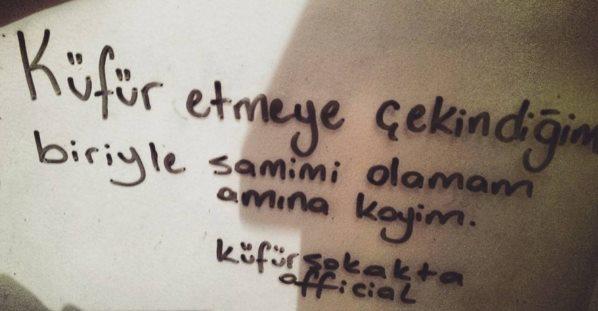 Küfür etmeye çekindiğim
biriyle samimi olamam
amına koyim.
küfürsokakta
official